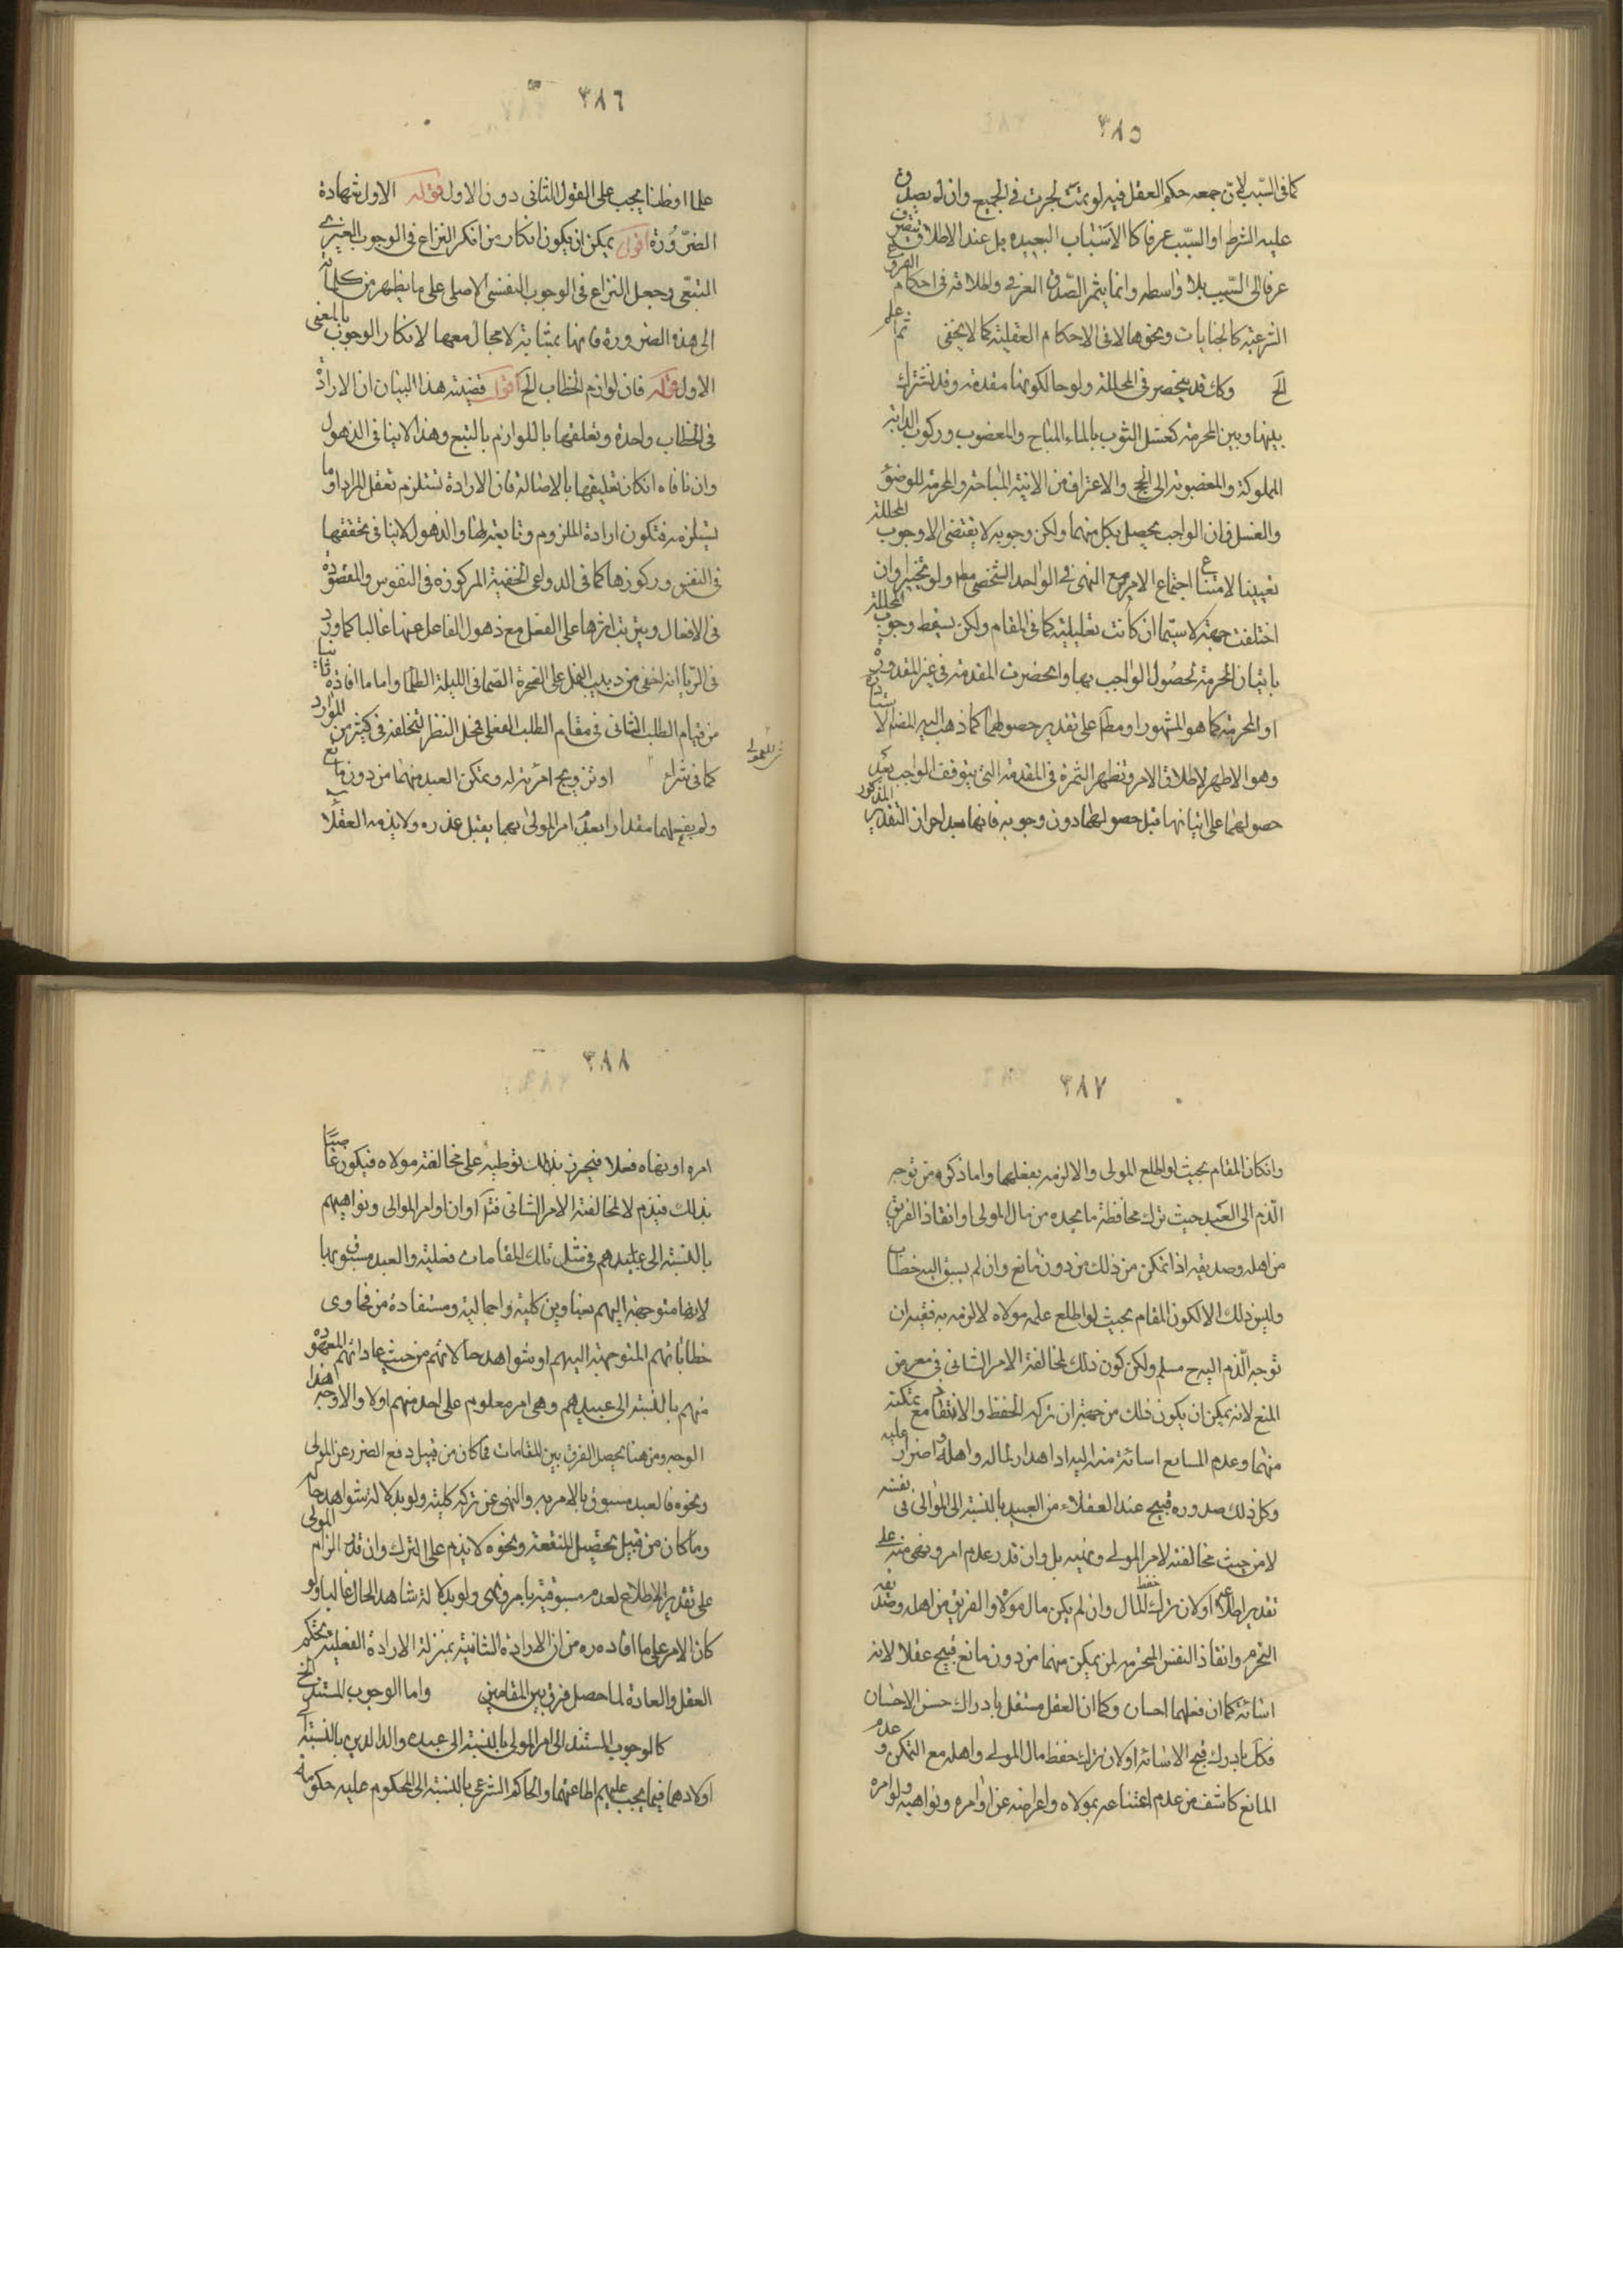 ٣٨٥
كما فى السّبب لانّ جمعه حكم العقل فيه لو تمّت لجرت فى الجميع وان لم يصدق
عليه الشرط او السّبب عرفا كالاسباب البعيده بل عند الاطلاق ينصرف
عرفا الى السّبب بلا واسطه وانما يثمر الصّدق العرفى واطلاقه فى احكام الفروع
الشرعيّه كالجنايات ونحوها لا فى الاحكام العقليّه كما لا يخفى ثم اعلم
الخ وكك قد ينحصر فى المحللة ولو حالكونها مقدمة وقد تشترك
بينها وبين المحرمة كغسل الثوب بالماء المباح والمغصوب وركوب الدابة
المملوكة والمغصوبة الى الحج والاغتراف من الانية المباحة والمحرمة للوضوء
والغسل فان الواجب يحصل بكل منهما ولكن وجوبه لا يقتضى الا وجوب المحللة
تعيينا لامتناع اجتماع الامر مع النهى فى الواحد الشخصى مط ولو تخييرا وان
اختلفت جهته لا سيّما ان كانت تعليلية كما فى المقام ولكن يسقط وجوب المحللة
باتيان المحرمة لحصول الواجب بها وانحصرت المقدمة فى غير المقدورة
او المحرمة كما هو المشهور او مطلقا على تقدير حصولهما كما ذهب اليه المض الاستاد
وهو الاظهر لاطلاق الامر وتظهر الثمرة فى المقدمة التى يتوقف الواجب بعد
حصولهما على اتيانها قبل حصولهما دون وجوبه فانها بعد احراز التقدير المذكور
٣٨٦
علما او ظنا يجب على القول الثانى دون الاول قوله الاول شهادة
الضرورة اقول يمكن ان يكون انكار من انكر النزاع فى الوجوب الغيرى
التبعى وجعل النزاع فى الوجوب النفسى الاصلى على ما يظهر من كلماته
الى هذه الضرورة فانها بمثابة لا مجال معها لانكار الوجوب بالمعنى
الاول قوله فان لوازم الخطاب الخ اقول قضية هذا البيان ان الارادة
فى الخطاب واحدة وتعلقها باللوازم بالتبع وهذا لا ينافى الذهول
وان نافاه انكان تعليقها بالاصالة فان الارادة تستلزم تعقل المراد او ما
يستلزمه فتكون ارادة الملزوم وتا بعيتها والذهول لا ينافى تحققها
فى النفس وركوزها كما فى الدواعى الخفية المركوزه فى النفوس والمقصودة
فى الافعال وبين تباثرها على الفعل مع ذهول الفاعل عنها غالبا كما ورد
فى الريا انه اخفى من دبيب النمل على الصخرة الصّما فى الليلة الظلما واما ما افاده ثانيا
من قيام الطلب الشانى فى مقام الطلب الفعلى فمحل النظر لتخلفه فى كثير من الموارد
كما فى شراء او تزويج امرئة له ويتمكن العبد منهما من دون مانع
شئ للمولى
ولم يفعلهما مقدارا بعد امر المولى بهما يقبل عذره ولا يذمه العقلا
٣٨٧
وانكان المقام بحيث لو اطلع المولى والا لزمه بفعلهما واما ذكره من توجه
الذم الى العبد حيث ترك محافظة ما يجده من مال المولى او انقاذ الغريق
من اهله وصديقه اذا تمكن من ذلك من دون مانع وان لم يسبق اليه خطاب
وليس ذلك الا لكون المقام بحيث لو اطلع علمه مولاه لالزمه به ففيه ان
توجه الذم اليه ح مسلم ولكن كون ذلك لمخالفة الامر الشانى فى معرض
المنع لانه يمكن ان يكون ذلك من جهة ان تركه الحفظ والانقاذ مع تمكنه
منهما وعدم المانع اسائة منه اليه اذ اهدار لماله واهله واضرار عليه
وكل ذلك صدوره قبيح عند العقلاء من العبيد بالنسبة الى الموالى فى نفسه
لا من حيث مخالفته لامر المولى ونهيه بل وان قدر عدم امر ونهى منه على
تقدير اطلاعه اولان ترك حفظ المال وان لم يكن مال مولاه والغريق من اهله وصديقه
المحترم وانقاذ النفس المحترمه لمن يمكن منهما من دون مانع قبيح عقلا لانه
اسائة كما ان فعلهما احسان وكما ان العقل مستقل بادراك حسن الاحسان
فكك بادراك قبح الاسائة اولان ترك حفظ مال المولى واهله مع التمكن وعدم
المانع كاشف من عدم اعتناءه بمولاه واعراضه عن اوامره ونواهيه ولو امره
٣٨٨
امره او نهاه فعلا فيحرز بذلك توطينه على مخالفة مولاه فيكون عاصيا
بذلك فيذم لا لمخالفته الامر الشانى فتد او ان اوامر الموالى ونواهيهم
بالنسبة الى عبيدهم فى مثل تلك المقامات فعلية والعبد مسبوق بها
لانها متوجهة اليهم بعناوين كلية واجمالية ومستفادة من فحاوى
خطاباتهم المتوجهة اليهم او شواهد حالاتهم من حيث عاداتهم المعهودة
منهم بالنسبة الى عبيدهم وهى امر معلوم على احد منهم اولا والاوجه هذا
الوجه ومن هنا يحصل الفرق بين المقامات فما كان من قبيل دفع الضرر عن المولى
ونحوه فالعبد مسبوق بالامر به والنهى عن تركه كلية ولو بدلالة شواهد حاله
وما كان من قبيل تحصيل المنفعة ونحوه لا يذم على الترك وان قدر الزام المولى
على تقدير الاطلاع لعدم مسبوقيته بامر ونهى ولو بدلالة شاهد الحال غالبا ولو
كان الامر على ما افاده ره من ان الارادة الشانية بمنزلة الارادة الفعلية بحكم
العقل والعادة لما حصل فرق بين المقامين واما الوجوب المستند الخ
كالوجوب المستند الى امر المولى بالنسبة الى عبده والوالدين بالنسبة الى
اولادهما فيما يجب عليهم اطاعتهما والحاكم الشرعى بالنسبة الى المحكوم عليه حكومة